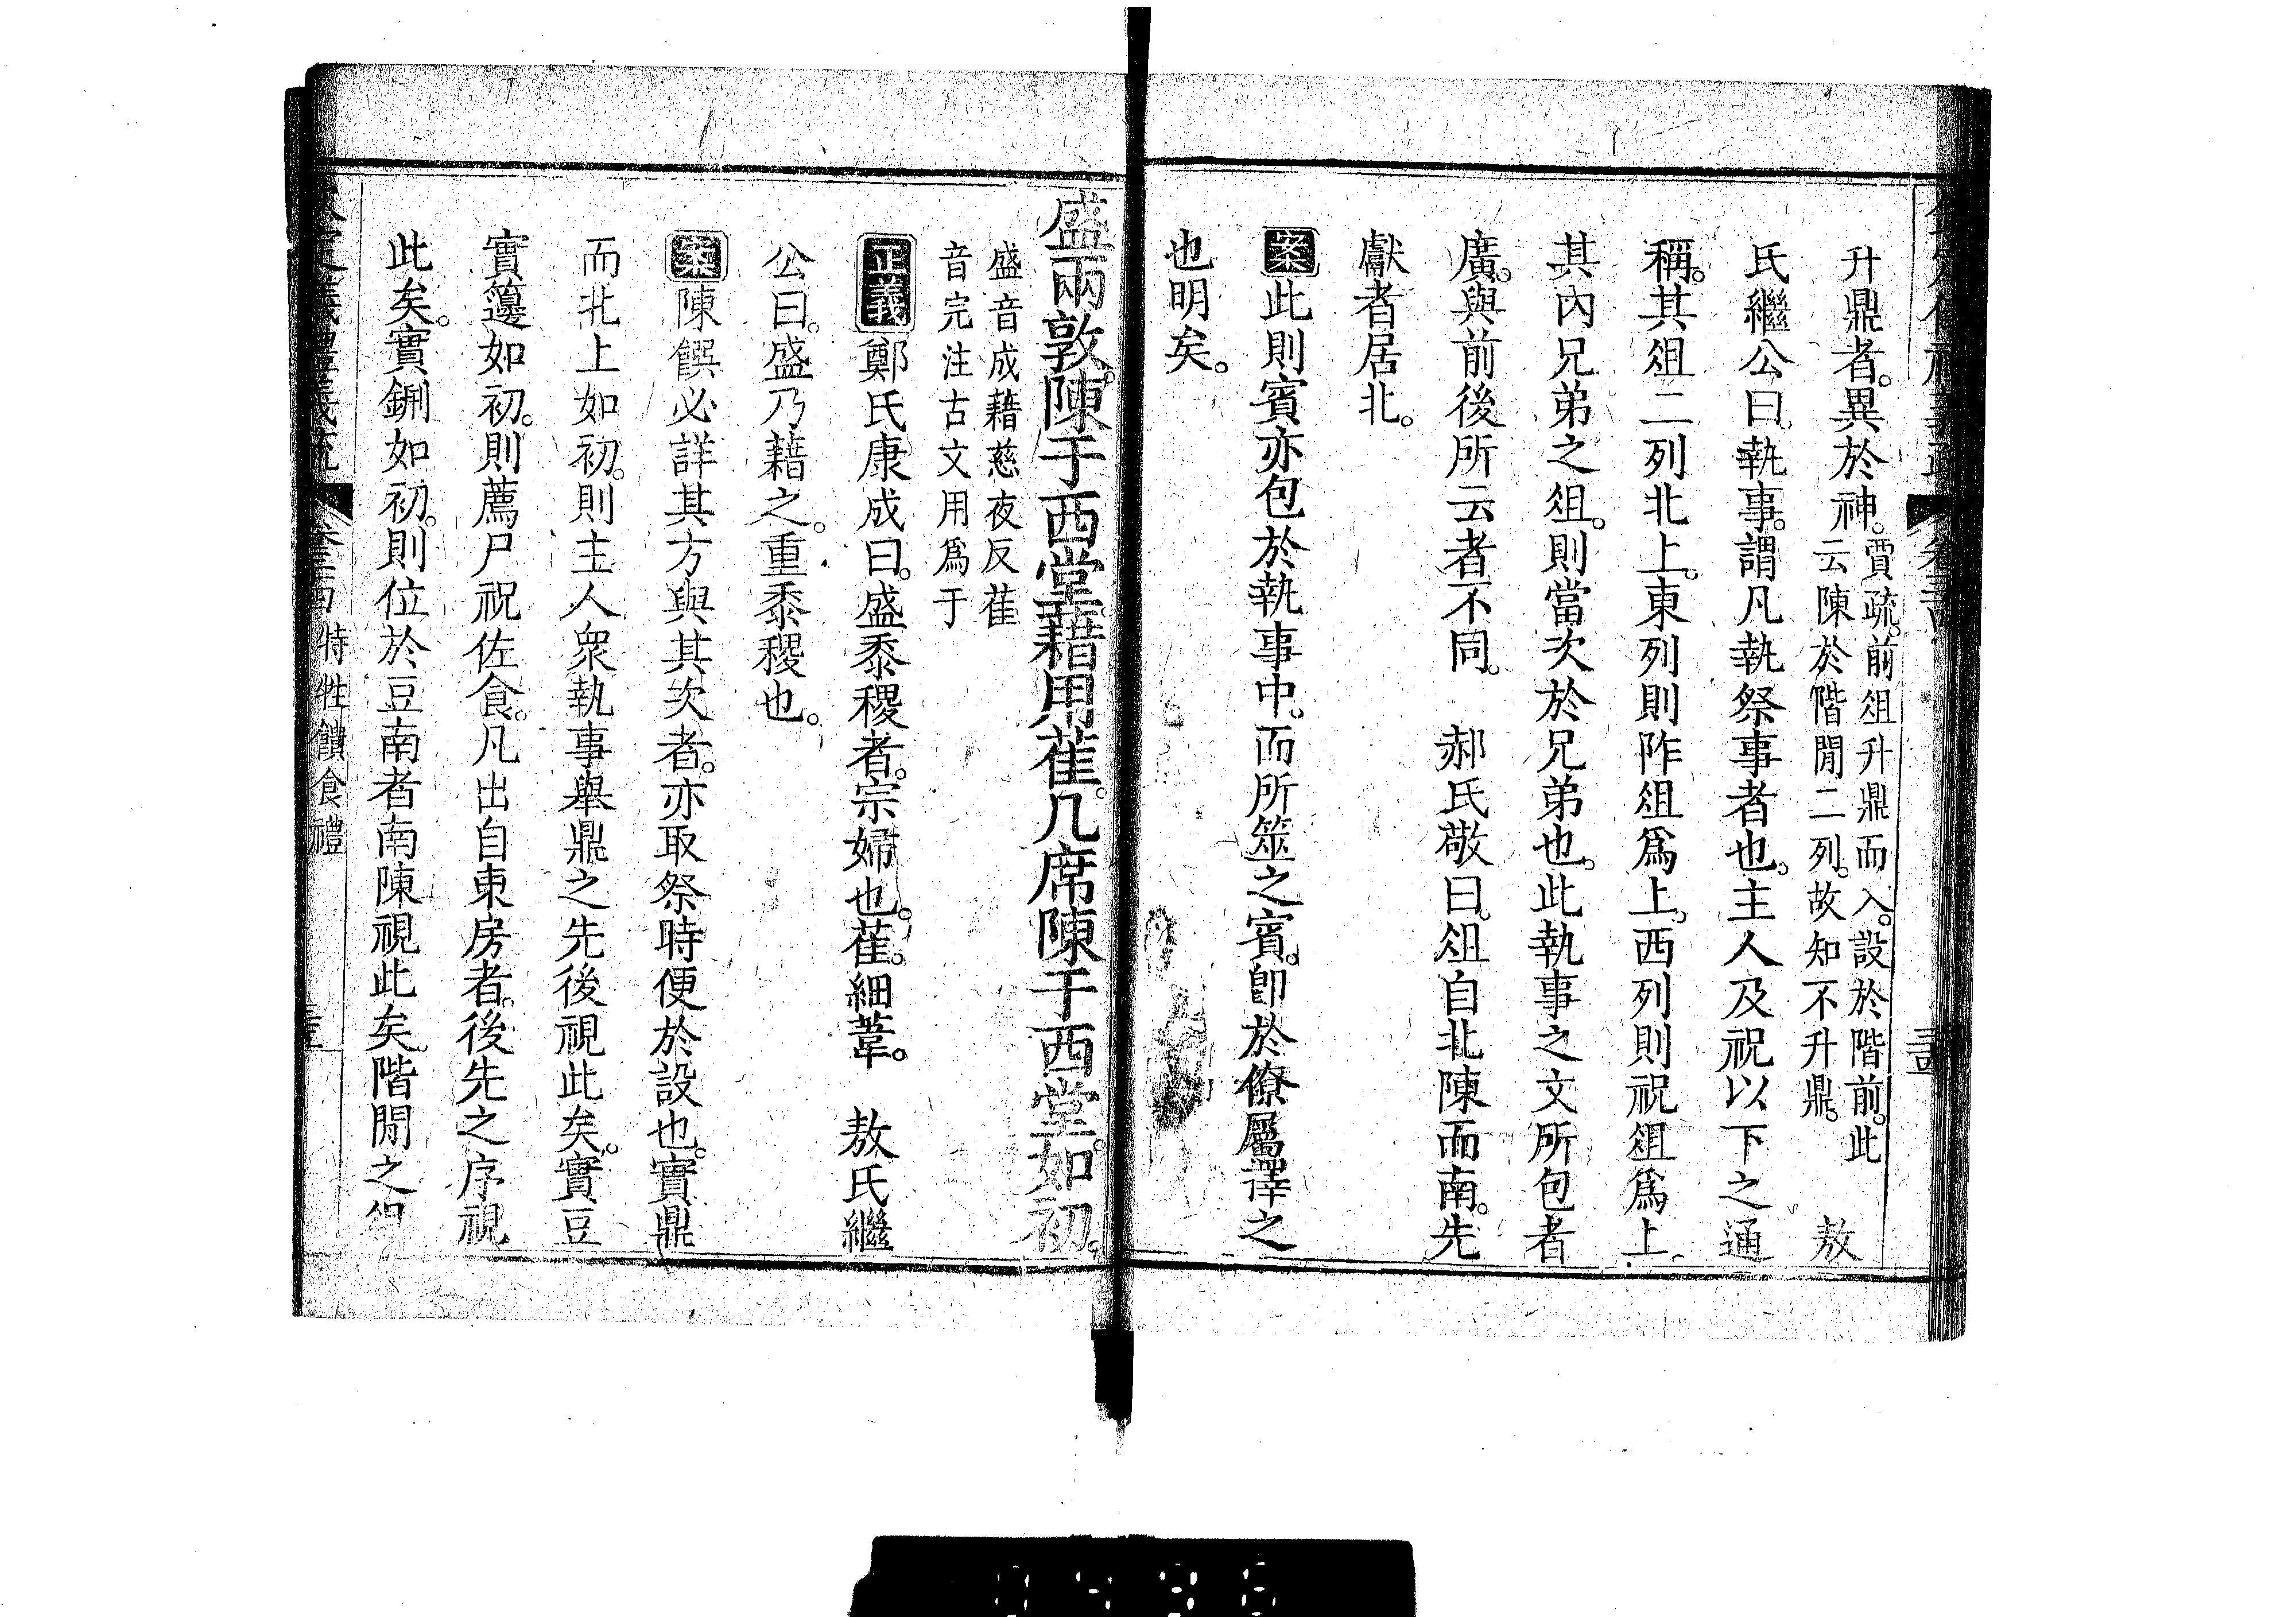 升鼎者。異於神。賈疏。前俎升鼎而入。設於階前。此
云陳於階閒二列。故知不升鼎。 敖
氏繼公曰。執事。謂凡執祭事者也。主人及祝以下之通
稱。其俎二列北上。東列則阼俎爲上。西列則祝俎爲上。
其內兄弟之俎。則當次於兄弟也。此執事之文所包者
廣。與前後所云者不同。 郝氏敬曰。俎自北陳而南。先
獻者居北。
案此則賓亦包於執事中。而所筮之賓。卽於僚屬擇之
也明矣。
盛兩敦。陳于西堂。藉用萑。几席陳于西堂。如初。
盛音成藉慈夜反萑
音完注古文用爲于
正義鄭氏康成曰。盛黍稷者。宗婦也。萑。細葦。 敖氏繼
公曰。盛乃藉之。重黍稷也。
案陳饌必詳其方與其次者。亦取祭時便於設也。實鼎
而北上如初。則主人衆執事舉鼎之先後視此矣。實豆
實籩如初。則薦尸祝佐食。凡出自東房者。後先之序視
此矣。實鉶如初。則位於豆南者南陳視此矣。階閒之俎
欽定儀禮義疏 卷三十四 特牲饋食禮